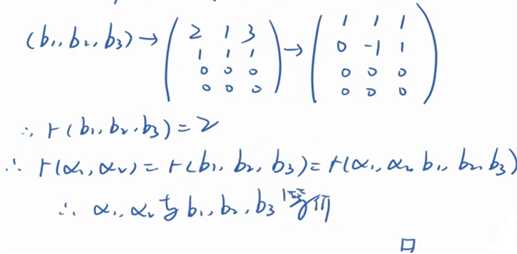 (b₁, b₂, b₃) → ( 2 1 3 ; 1 1 1 ; 0 0 0 ; 0 0 0 ) → ( 1 1 1 ; 0 -1 1 ; 0 0 0 ; 0 0 0 )
∴ r(b₁, b₂, b₃) = 2
∴ r(α₁, α₂) = r(b₁, b₂, b₃) = r(α₁, α₂, b₁, b₂, b₃)
∴ α₁, α₂ 与 b₁, b₂, b₃ 等价